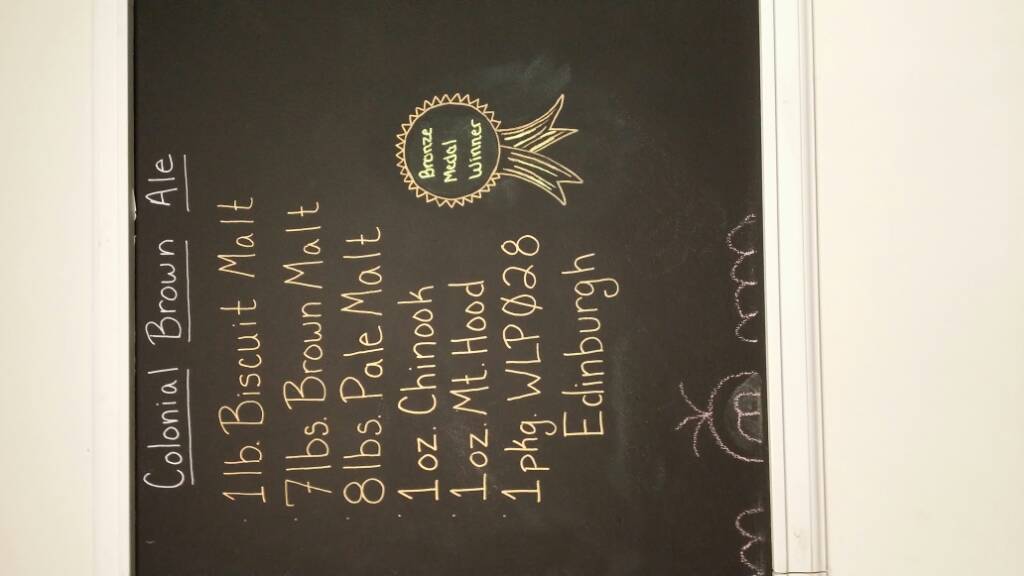 Colonial Brown Ale
1 lb. Biscuit Malt
7 lbs. Brown Malt
8 lbs. Pale Malt
1 oz. Chinook
1 oz. Mt. Hood
1 pkg. WLPØ28
Edinburgh
Bronze
Medal
Winner